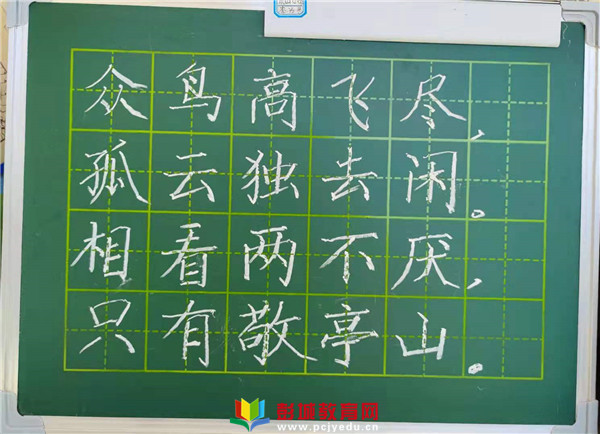 众鸟高飞尽,
孤云独去闲。
相看两不厌,
只有敬亭山。
彭城教育网
www.pcjyedu.cn